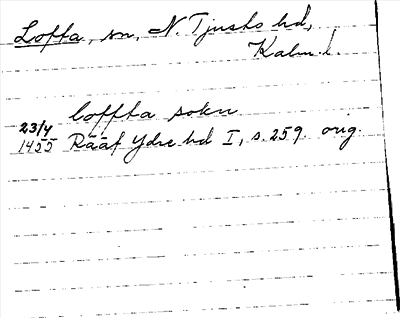 Lofta, sn, N. Tjusts hd,
Kalm. l.
loffta sokn
23/4
1455 Rääf Ydre hd I, s. 259 orig.